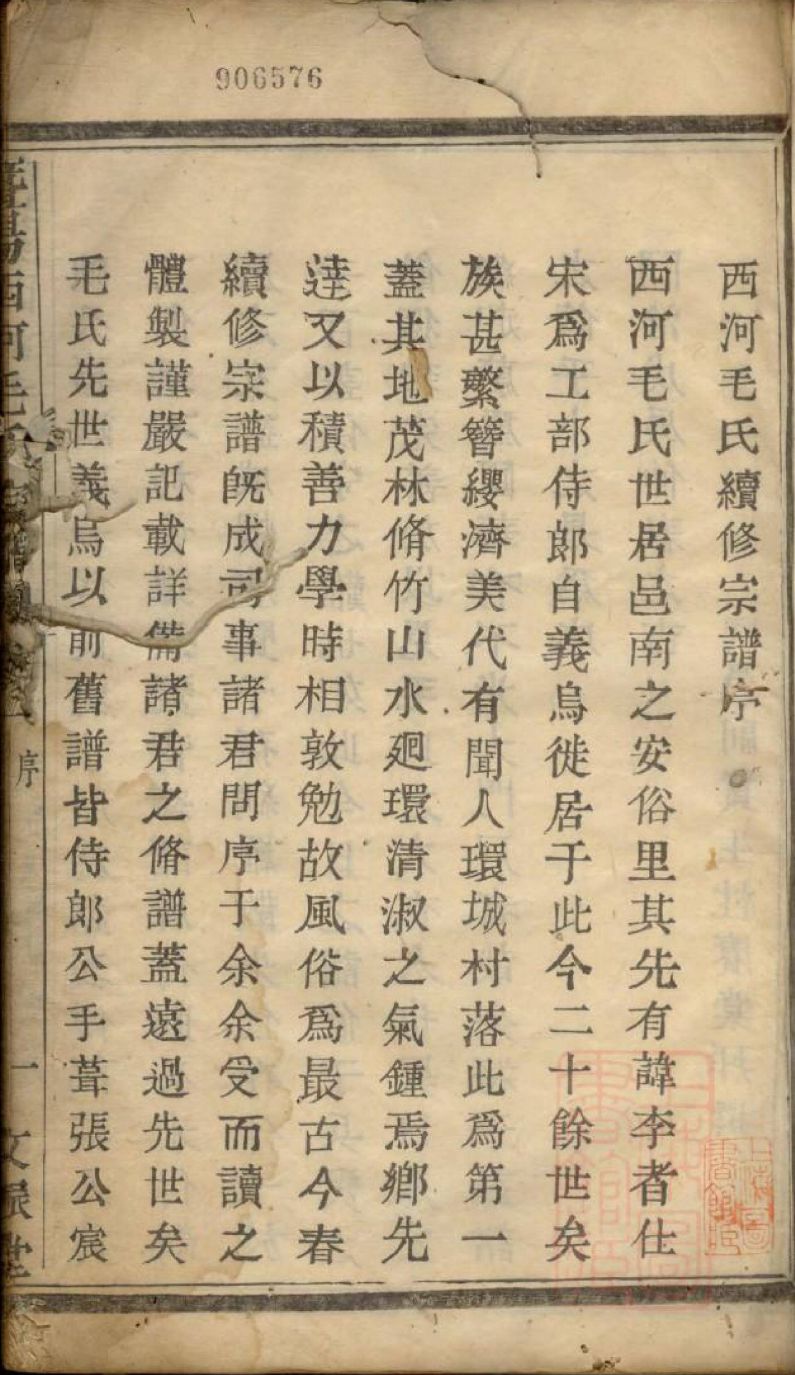 906576
西河毛氏續修宗譜序
西河毛氏世居邑南之安俗里其先有諱李者仕
宋爲工部侍郎自義烏徙居于此今二十餘世矣
族甚繁簪纓濟美代有聞人環城村落此爲第一
蓋其地茂林脩竹山水廻環清淑之氣鍾焉鄉先
逹又以積善力學時相敦勉故風俗爲最古今春
續修宗譜旣成司事諸君問序于余余受而讀之
體製謹嚴記載詳備諸君之脩譜蓋遠過先世矣
毛氏先世義烏以前舊譜皆侍郎公手葺張公宸
暨陽西河毛氏宗譜 序 一